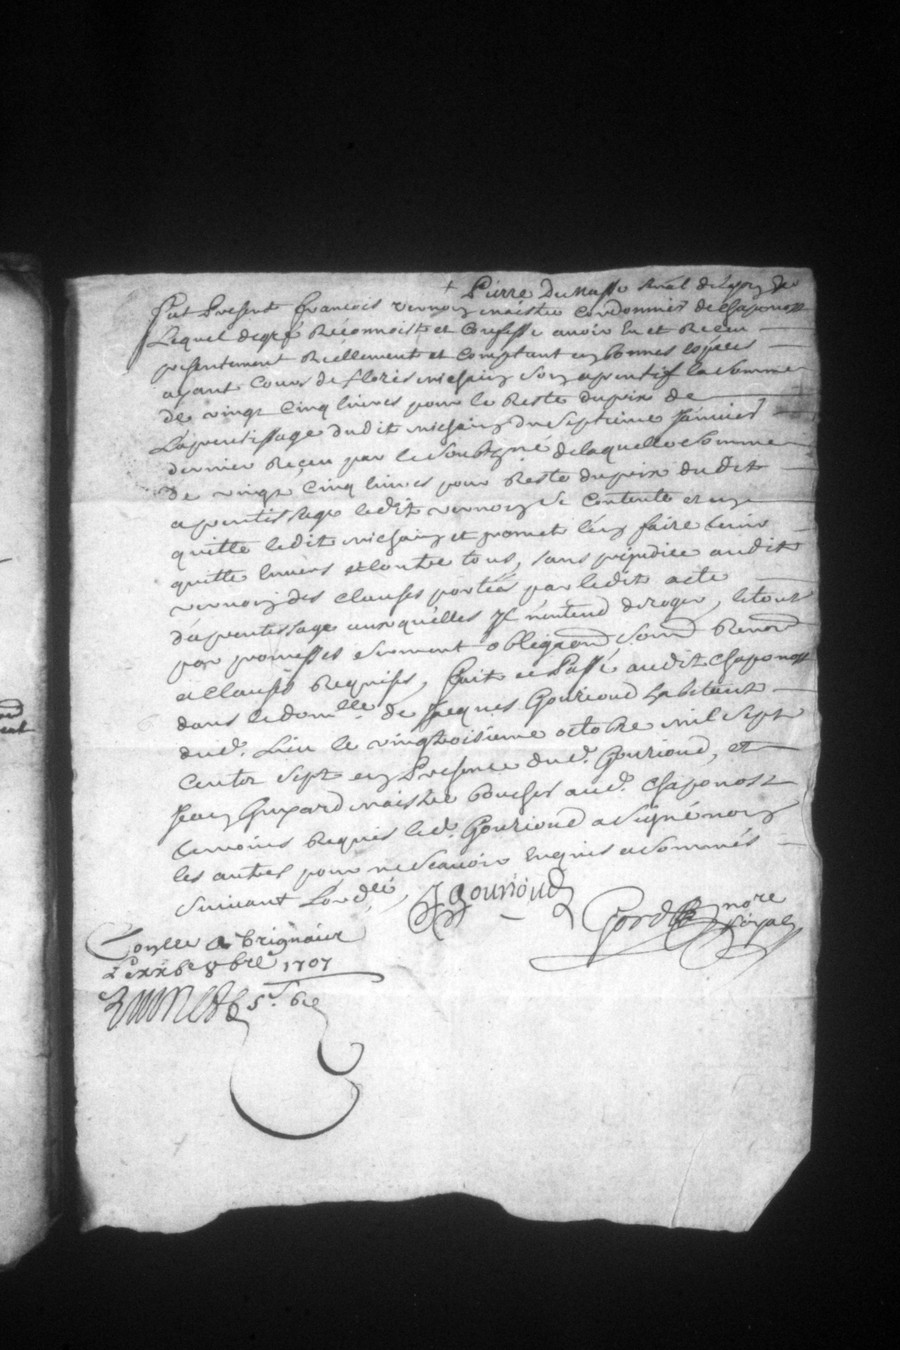 + Pierre Du
Fut Present françois vernoy maistre Cordonnier de Chaponost
Lequel de gré Reconnoist et Confesse avoir Eu et Receu
presentement Réellement et comptant en bonnes especes
ayant Cours de michaud son aprentif la Somme
de vingt Cinq livres pour le Reste du prix de
Laprentissage dudit michaud du Septieme Janvier
dernier Reçeu par le Soubsigné de laquelle Somme
de vingt Cinq livres pour Reste du prix dudit
aprentissage ledit vernoy Se Contente et en
quitte ledit michaud et promet len faire tenir
quitte Envers et Contre tous, sans préjudice audit
vernoy des clauses portées par ledit acte
d'aprentissage auxquelles Il n'entend deroger, le tout
par promesses Serment obligaond Soumd Renond
et clauses Requises, fait et Passé audit Chaponost
dans le domlle de Jacques Gourioud habitant
dud. Lieu le vingt troisieme octobre mil Sept
Centz Sept en Presence dud. Gourioud, et
Jean maistre boucher aud. Chaponost
temoins Requis led. Gourioud a Signé non
les autres pour ne Scavoir Enquis et Sommés
Suivant Lord.
JGourioud
nore Royal
Conlle A brignais
8bre 1707